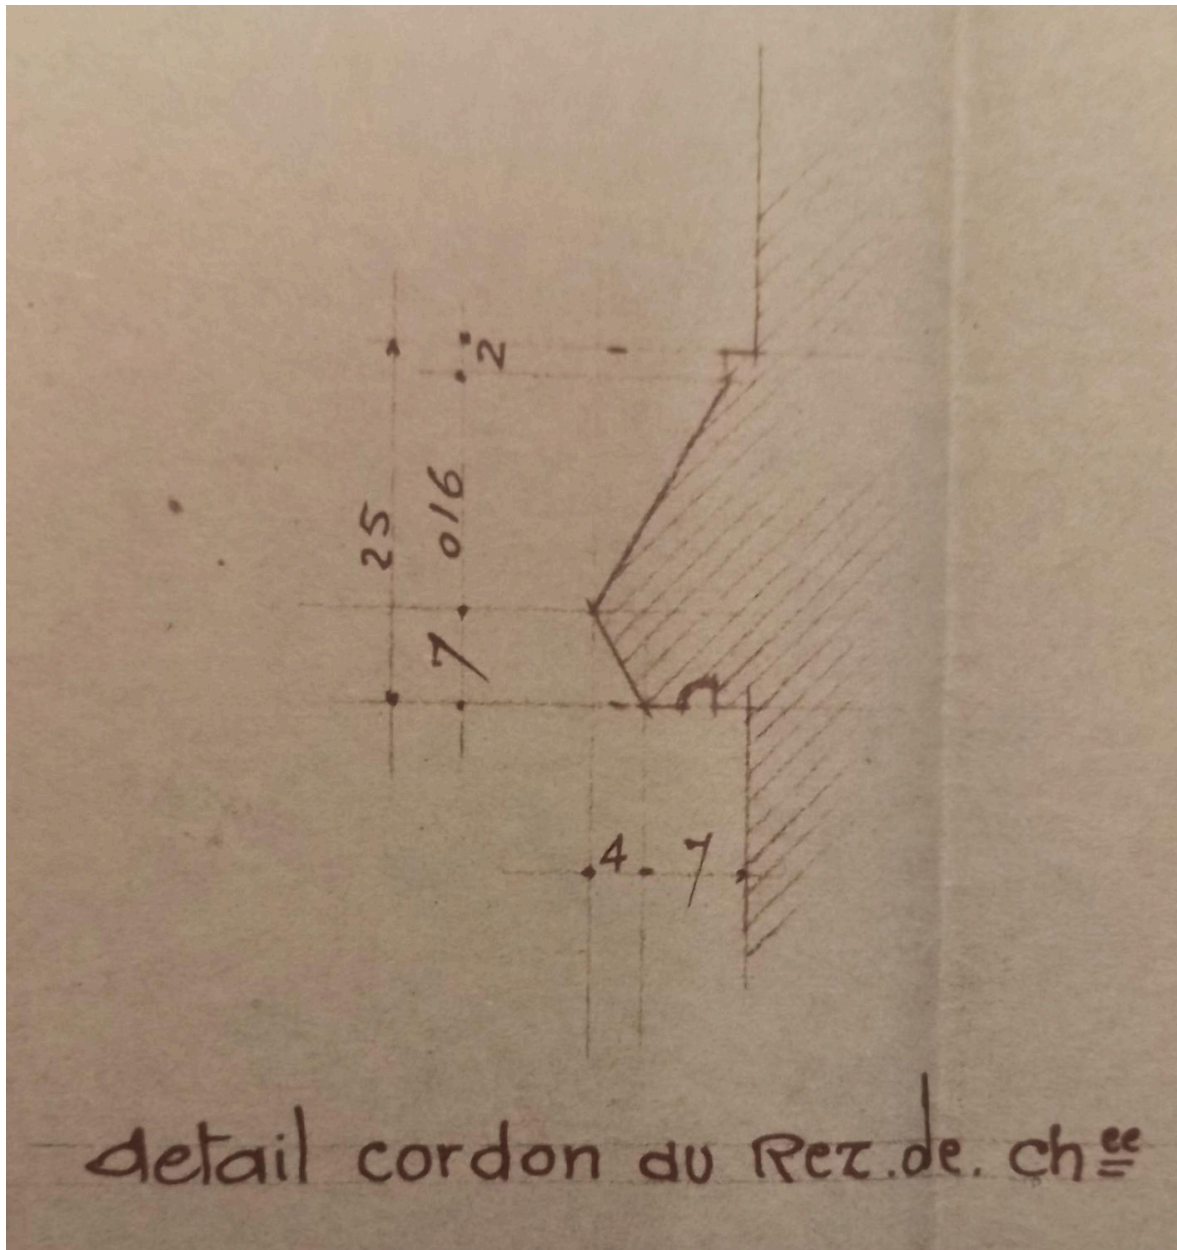 2
016
25
7
4 7
detail cordon du Rez.de.chee